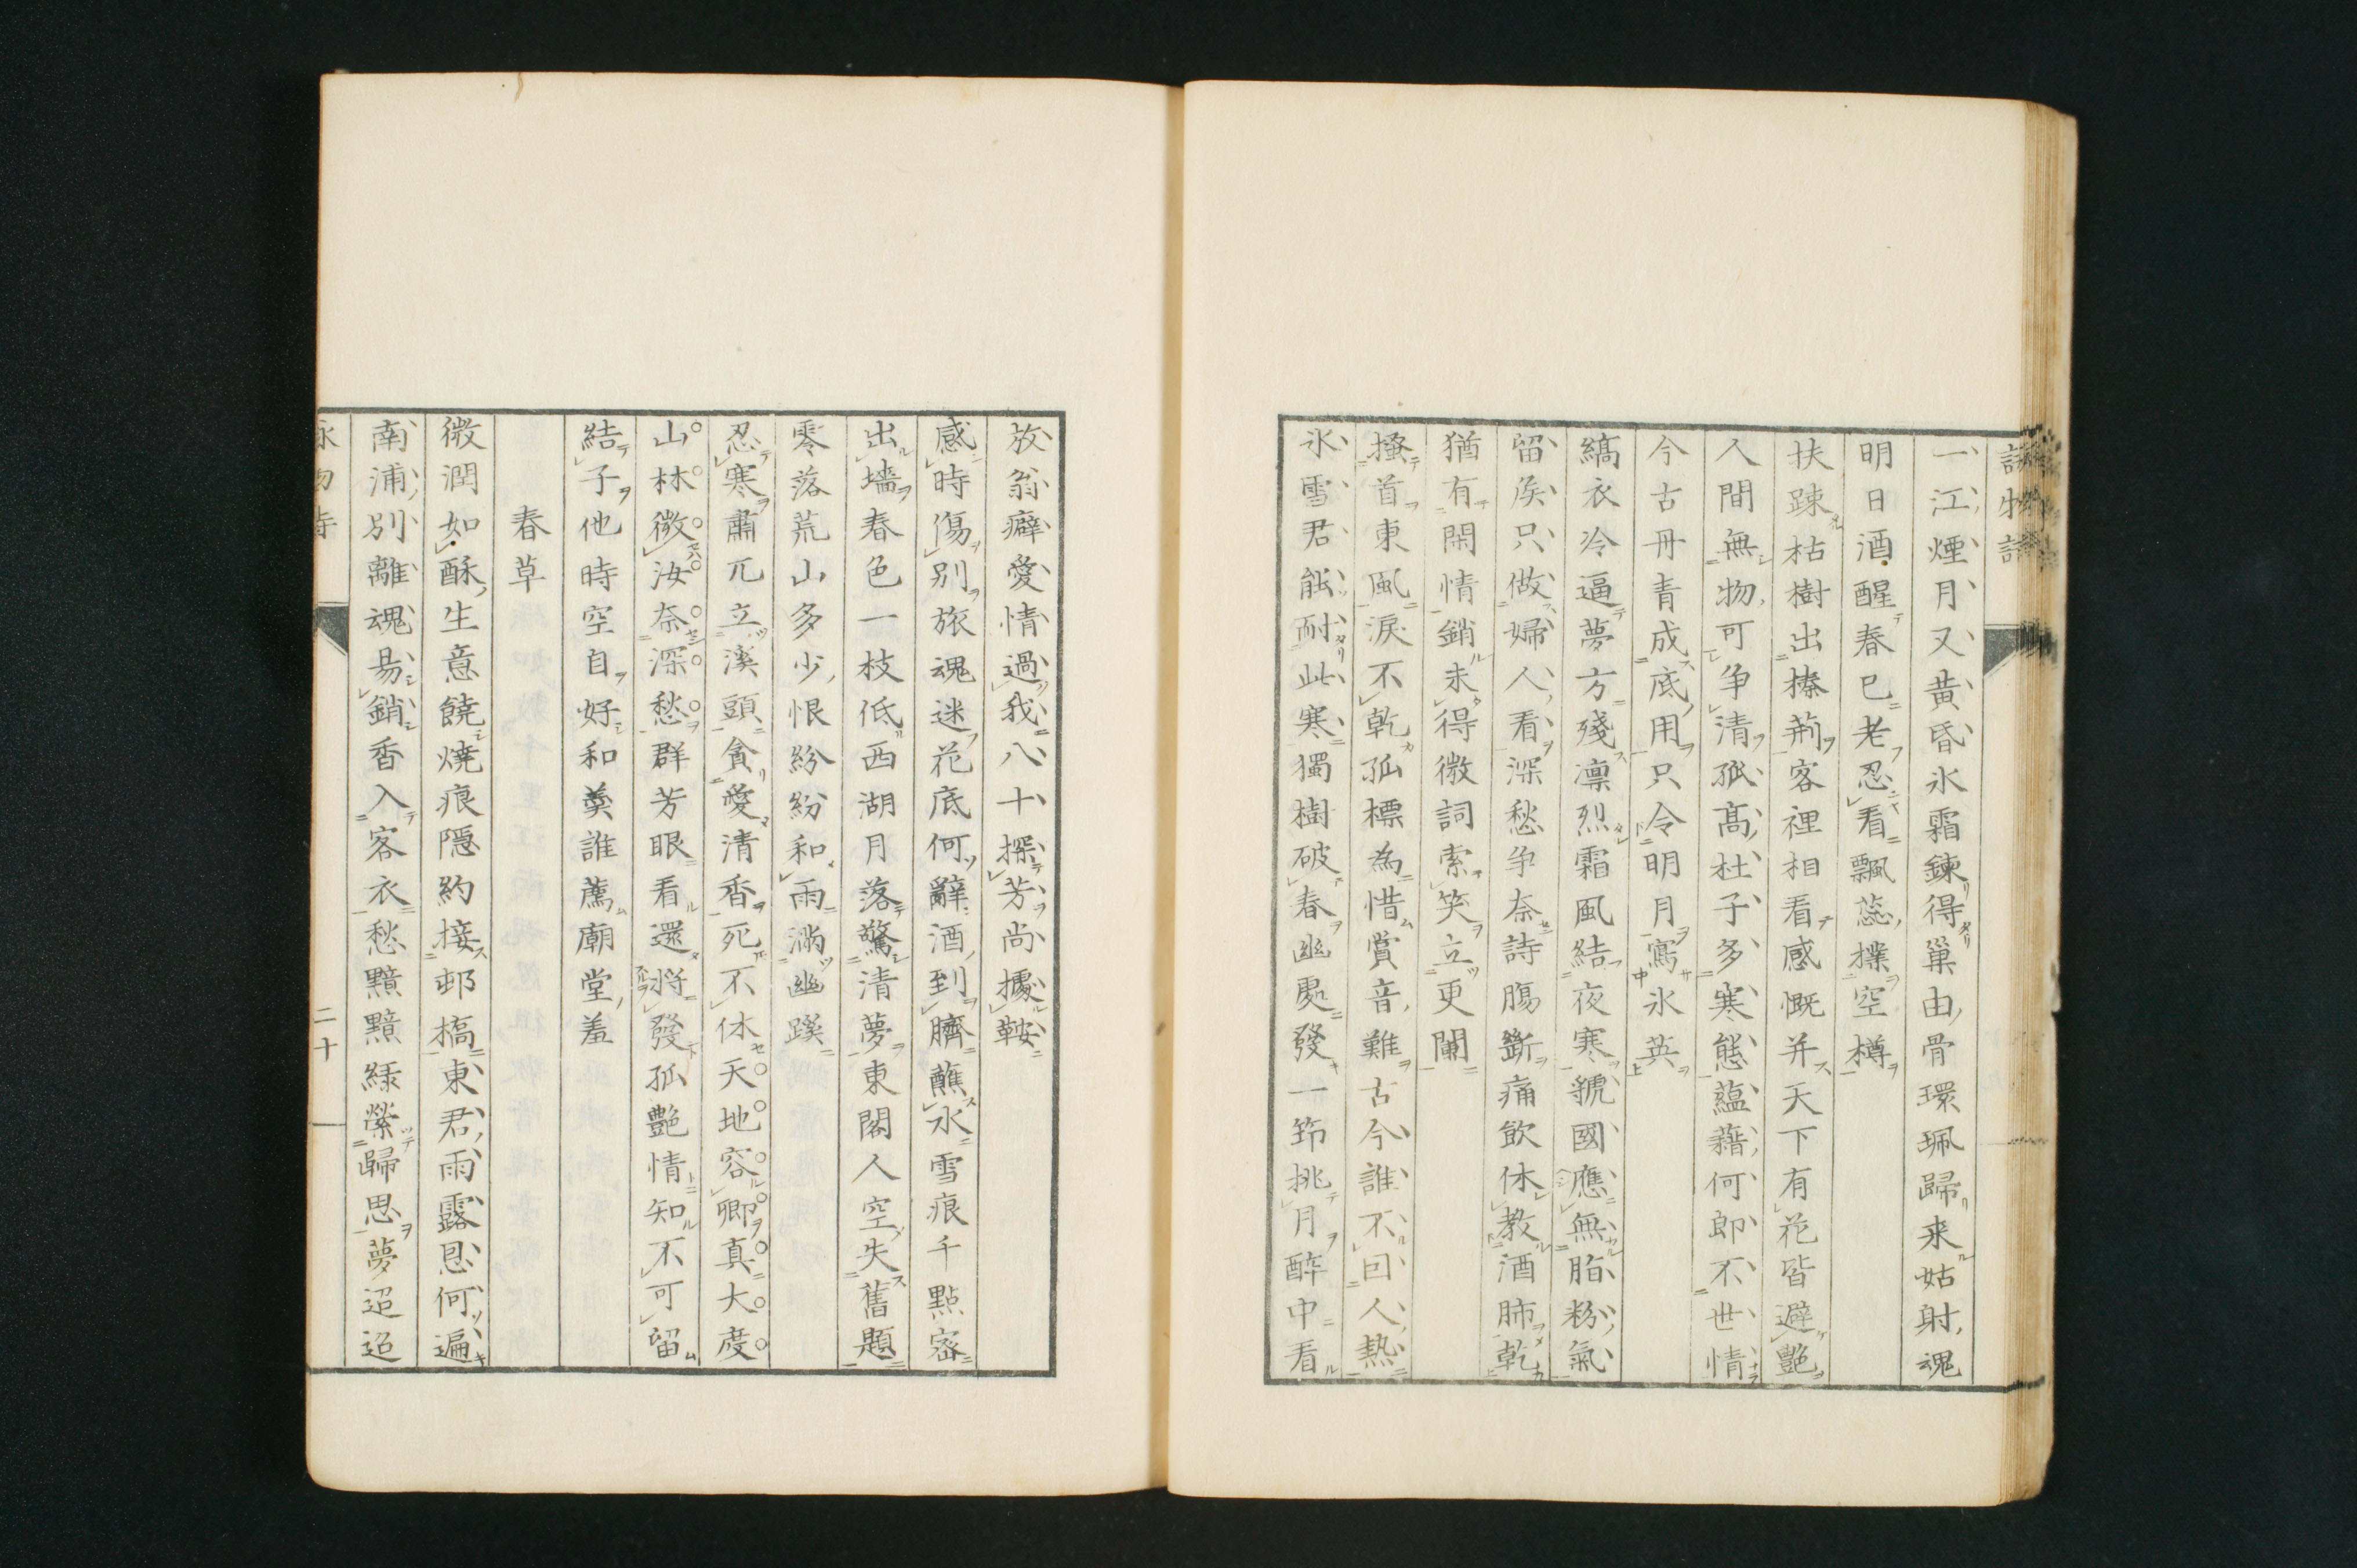 詠物詩
一江煙月又黄昏氷霜鍊得巢由骨環珮歸来姑射魂
明日酒醒春已老忍看飄蕊撲空樽
扶踈枯樹出榛荊客裡相看感慨并天下有花皆避艶
人間無物可争清孤高杜子多寒態蘊藉何郎不世情
今古丹青成底用只令明月寫氷英
縞衣冷逼夢方殘凛烈霜風結夜寒虢國應無脂粉氣
留矦只做婦人看深愁争奈詩腸斷痛飲休教酒肺乾
猶有閑情銷未得微詞索笑立更闌
搔首東風淚不乾孤標為惜賞音難古今誰不因人熱
氷雪君能耐此寒獨樹破春幽處發一筇挑月酔中看
放翁癖愛情過我八十探芳尚據鞍
感時傷別旅魂迷花底何辭酒到臍蘸水雪痕千點密
出墻春色一枝低西湖月落驚清夢東閣人空失舊題
零落荒山多少恨紛紛和雨滿幽蹊
忍寒肅兀立溪頭貪愛清香死不休天地容卿真大度
山林微汝奈深愁群芳眼看還將發孤艶情知不可留
結子他時空自好和羹誰薦廟堂羞
春草
微潤如酥生意饒燒痕隱約接邨橋東君雨露恩何遍
南浦別離魂易銷香入客衣愁黯黯綠縈歸思夢迢迢
詠物詩
二十